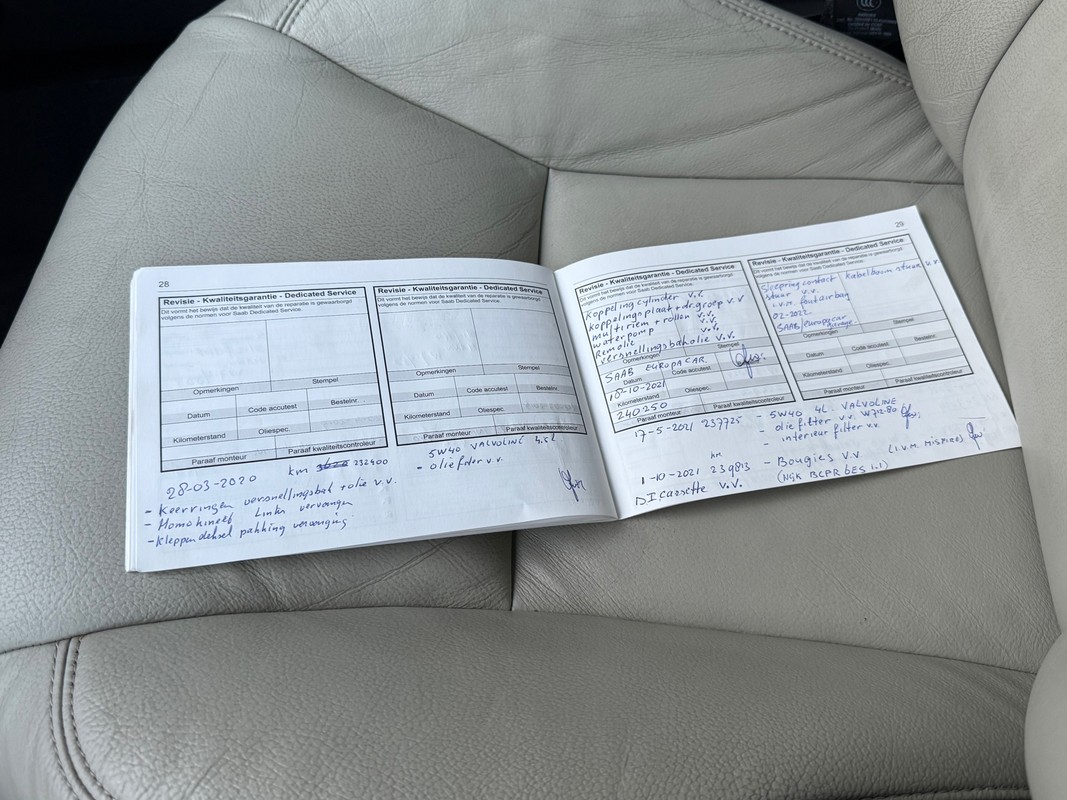 28
Revisie - Kwaliteitsgarantie - Dedicated Service
Dit vormt het bewijs dat de kwaliteit van de reparatie is gewaarborgd
volgens de normen voor Saab Dedicated Service.
Opmerkingen Stempel
Datum Code accutest Bestelnr.
Kilometerstand Oliespec.
Paraaf monteur Paraaf kwaliteitscontroleur
28-03-2020 km 232400
- Keerringen versnellingsbak + olie v.v.
- Homokineet Links vervangen
- Kleppendeksel pakking vervanging
Revisie - Kwaliteitsgarantie - Dedicated Service
Dit vormt het bewijs dat de kwaliteit van de reparatie is gewaarborgd
volgens de normen voor Saab Dedicated Service.
Opmerkingen Stempel
Datum Code accutest Bestelnr.
Kilometerstand Oliespec.
Paraaf monteur Paraaf kwaliteitscontroleur
5W40 VALVOLINE 4.5L
- oliefilter v.v.
29
Revisie - Kwaliteitsgarantie - Dedicated Service
Dit vormt het bewijs dat de kwaliteit van de reparatie is gewaarborgd
volgens de normen voor Saab Dedicated Service.
Koppeling cylinder v.v.
Koppelingsplaat + dr.groep v.v
multiriem + rollen v.v.
waterpomp v.v.
Remolie v.v.
versnellingsbakolie v.v.
Opmerkingen Stempel
SAAB EUROPACAR.
Datum Code accutest Bestelnr.
18-10-2021
Kilometerstand Oliespec.
240250
Paraaf monteur Paraaf kwaliteitscontroleur
Revisie - Kwaliteitsgarantie - Dedicated Service
Dit vormt het bewijs dat de kwaliteit van de reparatie is gewaarborgd
volgens de normen voor Saab Dedicated Service.
Sleepring contact Kabelboom stuur v.v
stuur v.v.
i.v.m. fout airbag
02-2022
SAAB/europacar
Opmerkingen Stempel
Datum Code accutest Bestelnr.
Kilometerstand Oliespec.
Paraaf monteur Paraaf kwaliteitscontroleur
17-5-2021 237725 - 5W40 4L. VALVOLINE
- oliefilter v.v. W712-80
- interieur filter v.v.
km
1-10-2021 239813 - Bougies v.v. (i.v.m. misfires)
DI cassette v.v. (NGK BCPR 6ES 1.1)